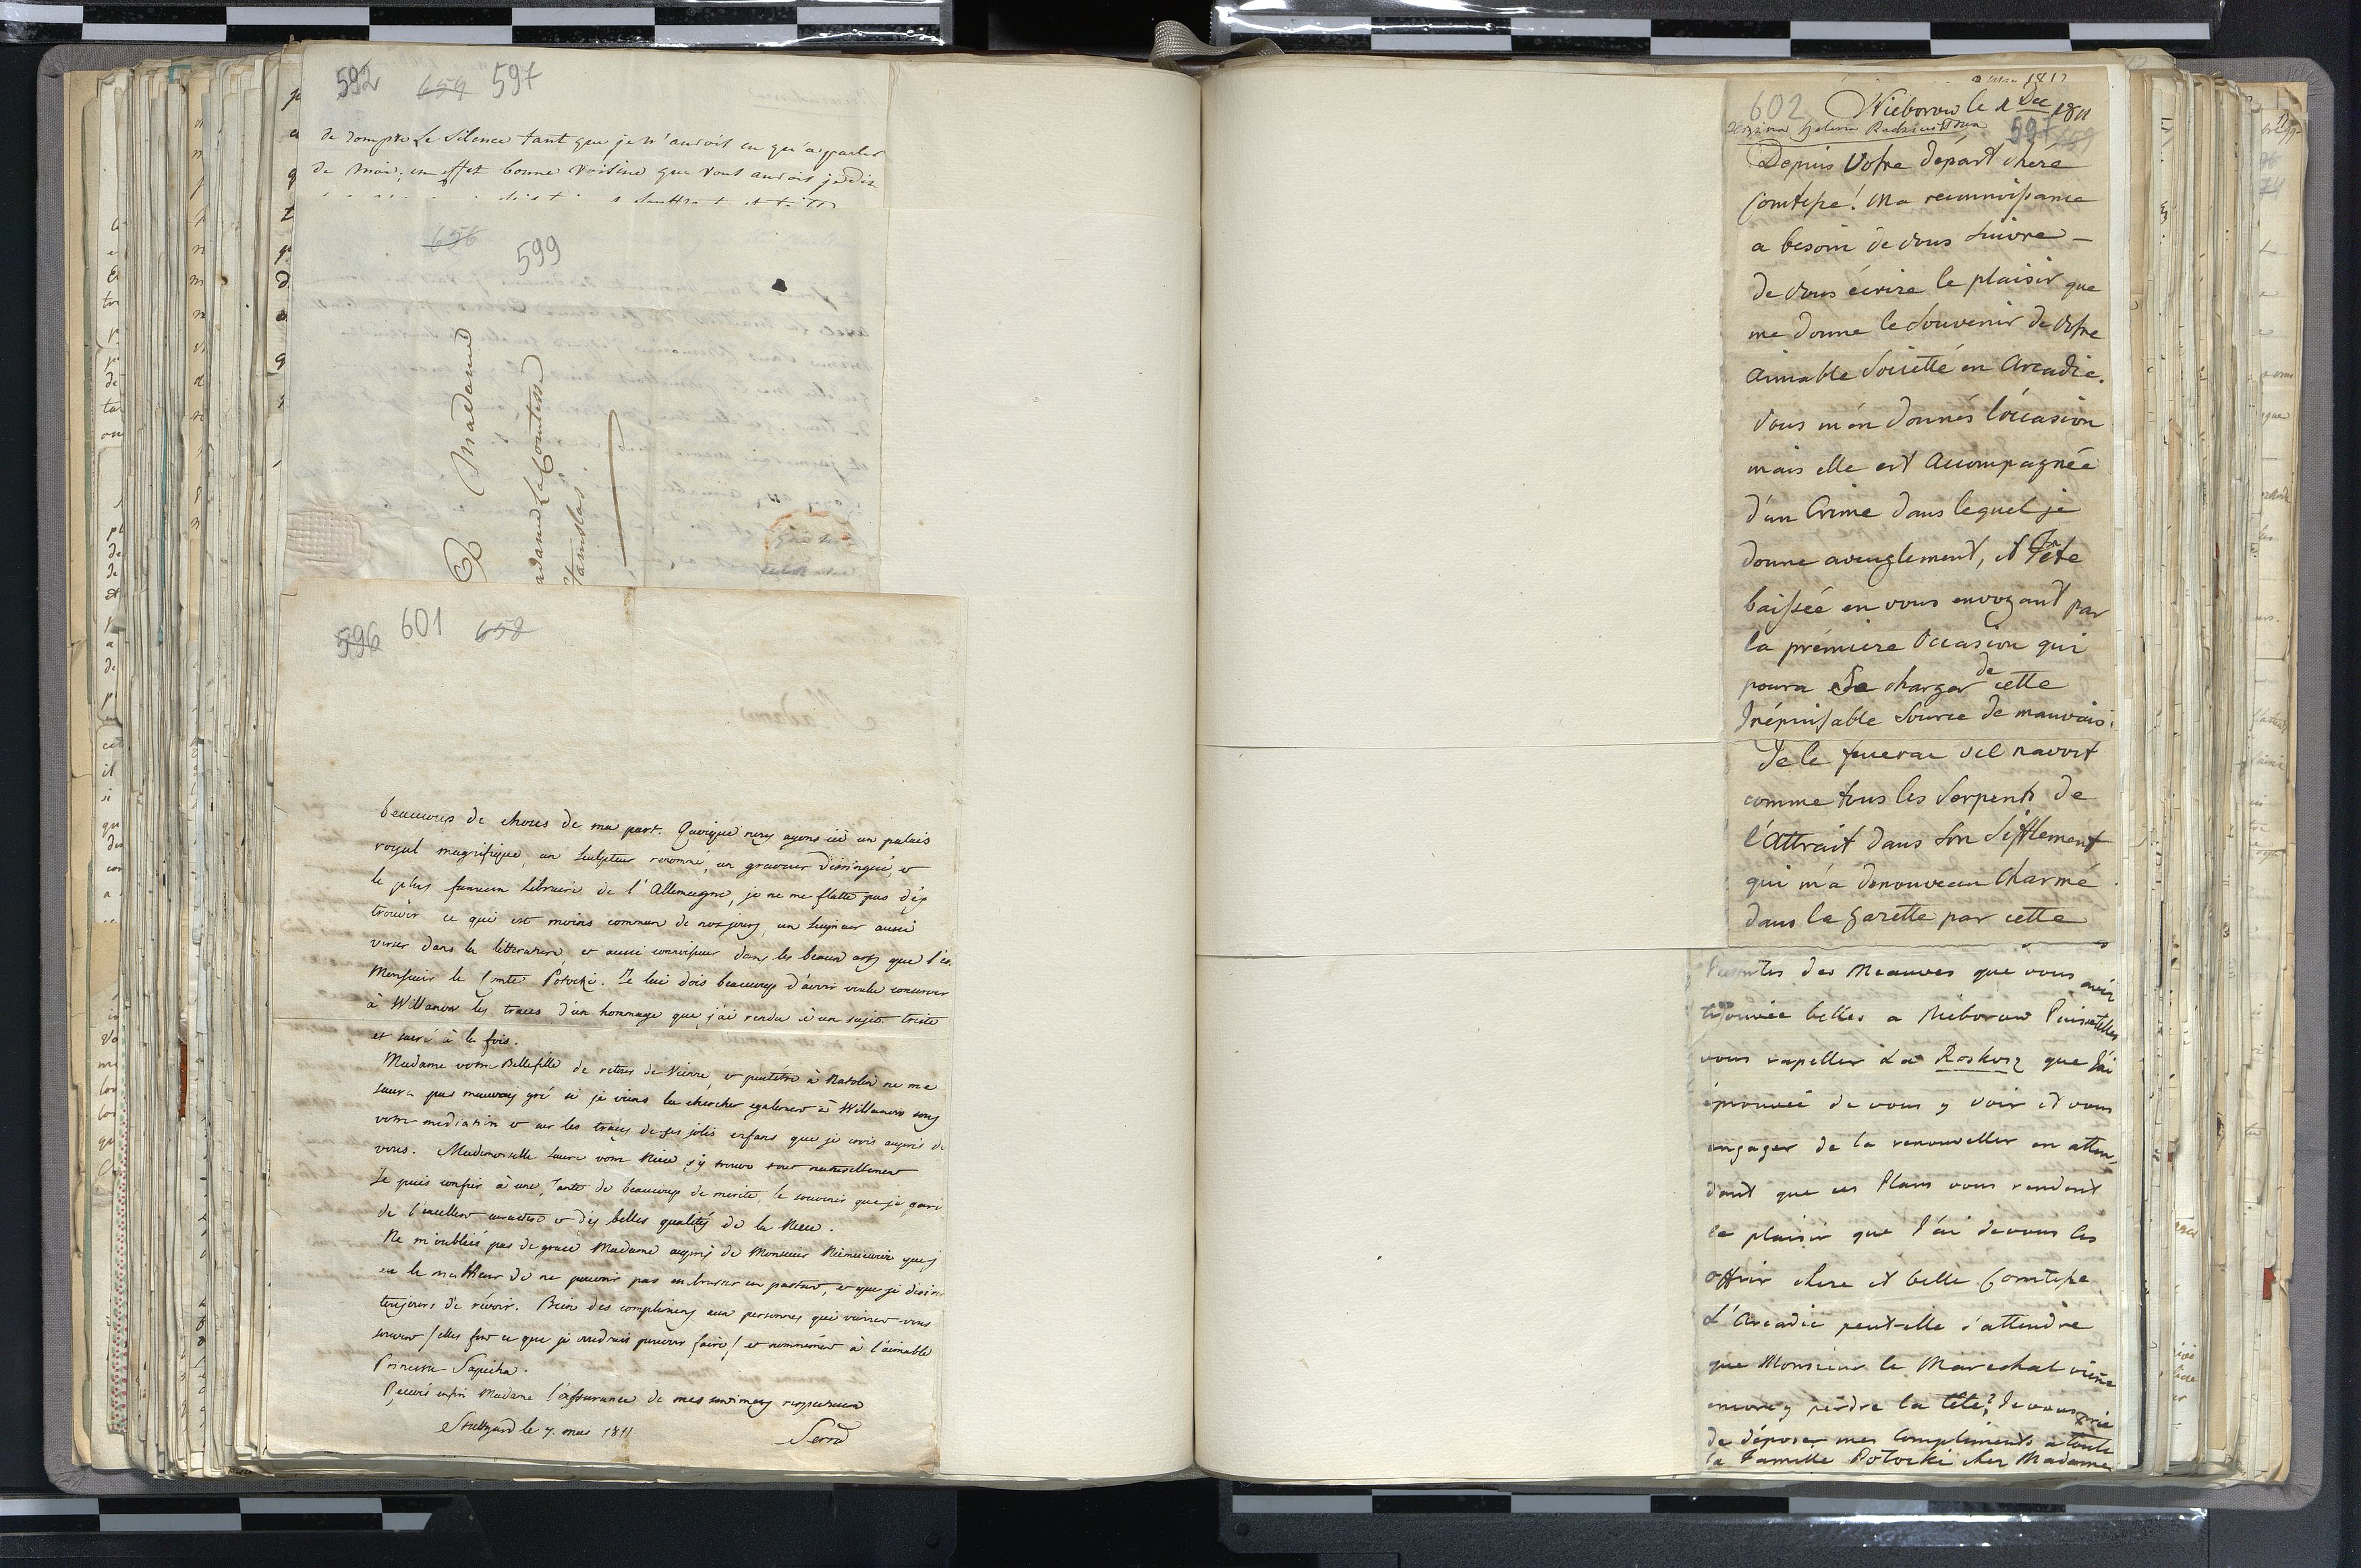 592 659 597
de rompre Le Silence tant que je n'aurois eu qu'a parler
de moi; en effet bonne Voisine que vous aurois je dit
656
599
A Madame
Madame La Comtesse
Stanislas
596 601 658
beaucoup de choses de ma part. Quoique nous ayons ici un palais
royal magnifique, un sculpteur renommé, un graveur distingué, et
le plus fameux libraire de l'Allemagne, je ne me flatte pas d'y
trouver ce qui est moins commun de nos jours, un Seigneur aussi
versé dans la litterature, et aussi connoisseur dans les beaux arts que l'est
Monsieur le Comte Potocki. Je lui dois beaucoup d'avoir voulu conserver
à Willanow les traces d'un hommage que j'ai rendu à un sujet triste
et sacré à la fois.
Madame votre Bellefille de retour de Vienne, et peutêtre à Natolin ne me
saura pas mauvais gré si je viens la chercher egalement à Willanow sous
votre mediation et sur les traces de ses jolis enfans que je crois auprès de
vous. Mademoiselle Laure votre Niece s'y trouve tout naturellement
Je puis confier à une Tante de beaucoup de merite, le souvenir que je garde
de l'excellent caractere et des belles qualités de la Niece.
Ne m'oubliés pas de grace Madame auprès de Monsieur Niemcewicz que j'
eu le malheur de ne pouvoir pas embrasser en partant, et que je desire
toujours de révoir. Bien des complimens aux personnes qui viennent vous
souvent / elles font ce que je voudrais pouvoir faire / et nommément à l'aimable
Princesse Sapieha.
Recevés enfin Madame l'assurance de mes sentimens respectueux
Stuttgard le 7. mai 1811
Serra
602 Nieborow le 1 Dec 1811
Helena Radziwiłłowa 597 659
Depuis Votre depárt chere
Comtesse! Ma reconnoissance
a besoin de vous suivre –
de vous écrire le plaisir que
me donne le Souvenir de votre
aimable Societté en Arcadie.
Vous m'en donnés l'óccasion
mais elle est accompagnée
d'un Crime dans lequel je
donne aveuglement, et la Tête
baissée en vous envoyant par
la prémiere Occasion qui
poura Se charger de cette
Inépuisable Source de mauvais.
Je le tuerai s'il n'avoit
comme tous les Serpents de
l'Attrait dans Son Sifflement
qui m'a denouveau Charmé
dans la Gazette par cette
des Meauves que vous avéz
trouvée belles a Nieborow Puissetelles
vous rapeller La Roskosz que J'ai
éprouvée de vous y voir et vous
engager de la renouveller en atten-
dant que ces Plans vous rendent
le plaisir que J'ai devous les
offrir chere et belle Comtesse
L'Arcadie peut-elle s'attendre
que Monsieur le Marechal viene
encore y pérdre la tête? Je vous prie
de déposer mes Compliments a toute
la Famille Potocki cher Madame